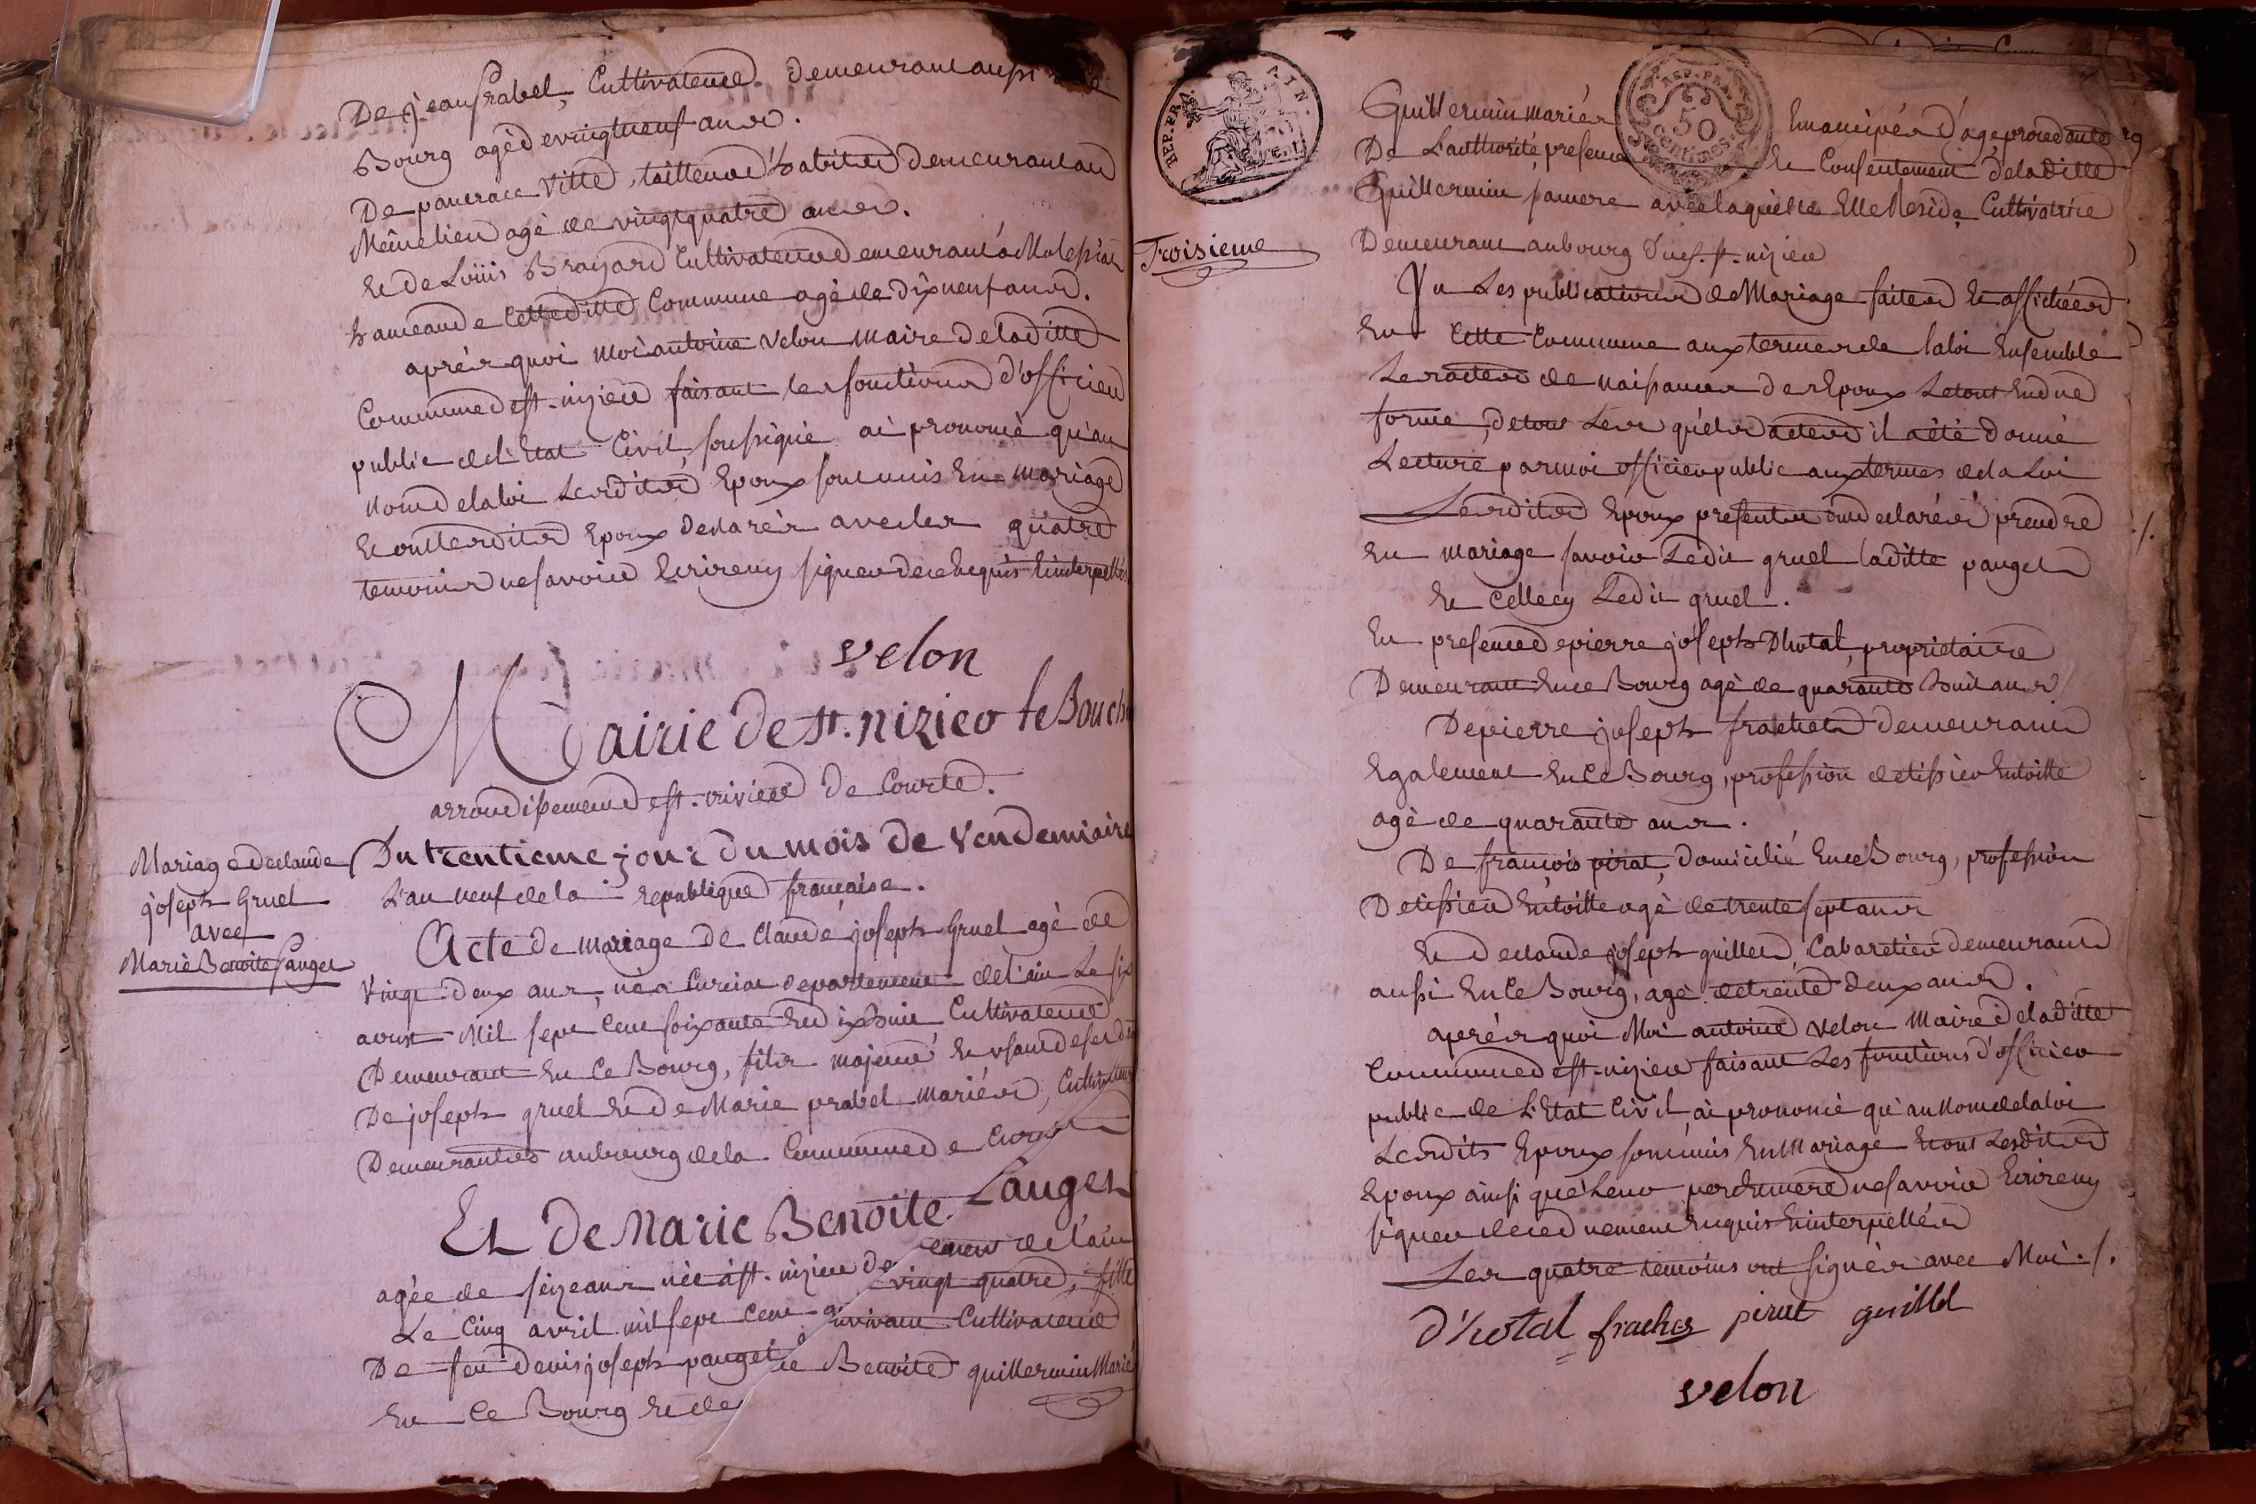 De jean Prabel, Cultivateur demeurant aussi
Bourg agé de vingt neuf ans.
De pancrace vitte, tailleur d'habits demeurant au
Même lieu agé de vingt quatre ans.
Et de Loüis Brayard Cultivateur demeurant á
hameau de Cette ditte Commune agé de dix neuf ans.
aprés quoi moi antoine velon maire de la ditte
Commune de st. nizier faisant les fonctions d'officier
public de l'Etat Civil, soussigné ai prononcé qu'au
nom de la loi Lesdits Epoux sont unis En mariage
Et ont lesdits Epoux declarés avec les quatre
temoins ne savoir Ecrire ny signer de ce Enquis Et interpellés
velon
Mairie de st. nizier le Bouch
arrondissement de st. trivier de Courte.
Mariage de claude
joseph Gruel
avec
Marie Benoite Pauget
Du trentieme jour du mois de Vendemiaire
L'an neuf de la republique française.
Acte de mariage de claude joseph Gruel agé de
vingt-deux ans, né a Curciat departement de l'ain Le six
aoust Mil sept Cent soixante Et dix huit Cultivateur
Demeurant En Ce Bourg, fils majeur Et usant de ses droits
De joseph gruel Et de Marie prabel mariés, Cultivateurs
Demeurantes au bourg de la Commune de Curciat
Et De Marie Benoite Pauget
agée de seize ans née á st. nizier de ement de l'ain
Le Cinq avril mil sept Cent vingt quatre, fille
De feu denis joseph pauget vivant Cultivateur
En Ce Bourg Et de Benoite guillermin Marié
REP. FRA. AIN.
REP. FRA.
50
Centimes
Troisieme
Guillermin mariés Emancipée d'age procedante
De L'authorité, presence Et Consentement de la ditte
Guillermin sa mere avec laquelle Elle Reside Cultivatrice
Demeurant au bourg dud. st. nizier
Vu Les publications de Mariage faites Et affichées
En Cette Commune aux termes de la loi Ensemble
Les actes de naissance des Epoux Le tout En due
forme, de tous Lesquels actes il a été donné
Lecture par moi officier public aux termes de la Loi
Lesdits Epoux presents ont declarés prendre
En mariage savoir Ledit gruel laditte pauget
Et Cellecy Ledit gruel.
En presence de pierre joseph Dhotal, proprietaire
Demeurant En ce Bourg agé de quarante huit ans
De pierre joseph frachet demeurant
Egalement En Ce Bourg, profession de tissier En toille
agé de quarante ans.
De françois pirat, domicilié En ce Bourg, profession
De tissier En toille agé de trente sept ans
Et de claude joseph guillet, Cabaretier demeurant
aussi En Ce Bourg, agé de trente deux ans.
aprés quoi Moi antoine velon Maire de laditte
Commune de st. nizier faisant Les fonctions d'officier
public de L'Etat Civil, ai prononcé qu'au Nom de la loi
Lesdits Epoux sont unis En Mariage Et ont Lesdits
Epoux ainsi que Leur mere ne savoir Ecrire ny
signer de ce duement Enquis Et interpellés
Les quatre temoins ont signés avec Moi ./.
D'hotal frachet pirat guillet
velon